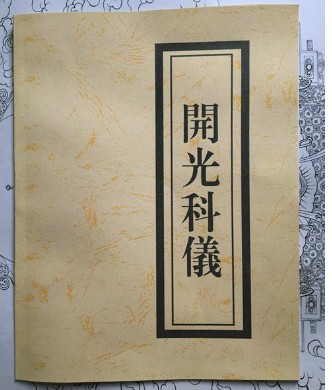 開光科儀